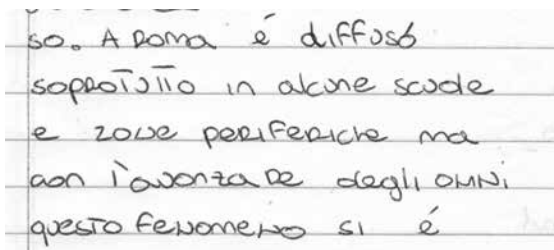 so. A Roma è diffuso
soprotutto in alcune scuole
e zone periferiche ma
con l'avanzare degli anni
questo fenomeno si è